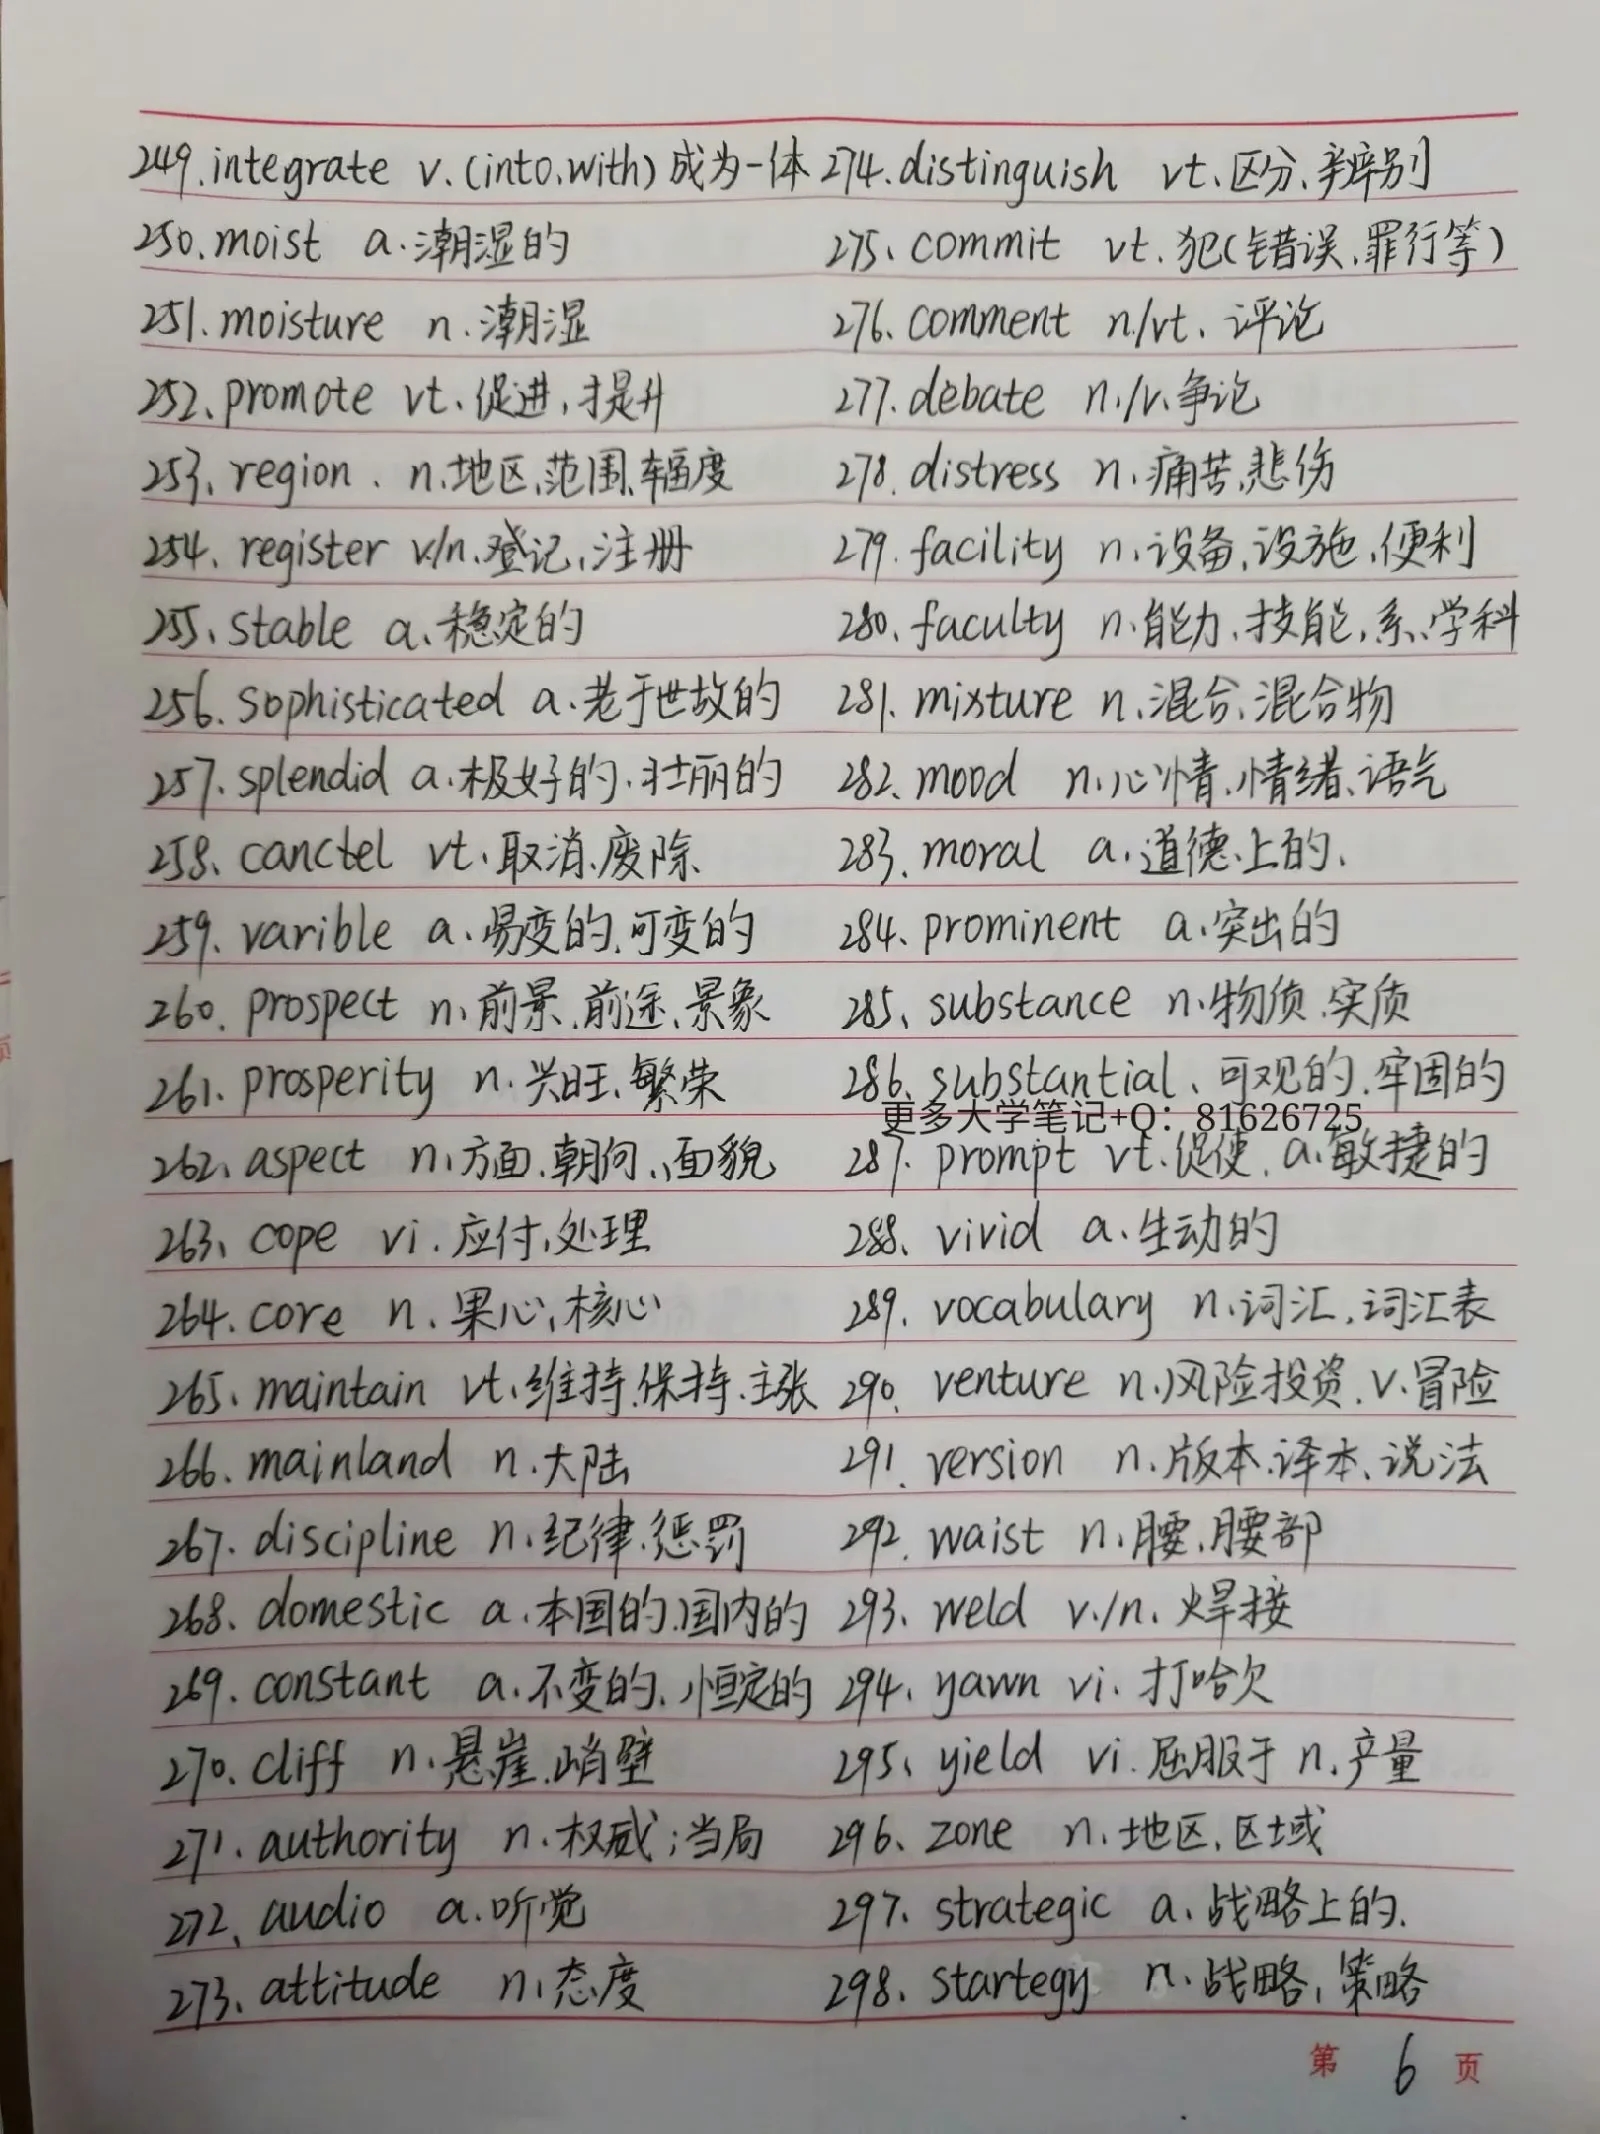 249.integrate v.(into.with)成为一体
250.moist a.潮湿的
251.moisture n.潮湿
252.promote vt.促进,提升
253.region.n.地区、范围、幅度
254.register v/n.登记,注册
255.stable a.稳定的
256.sophisticated a.老于世故的
257.splendid a.极好的.壮丽的
258.canctel vt.取消、废除
259.varible a.易变的.可变的
260.prospect n.前景.前途、景象
261.prosperity n.兴旺、繁荣
262.aspect n.方面.朝向、面貌
263.cope vi.应付,处理
264.core n.果心,核心
265.maintain vt.维持.保持.主张
266.mainland n.大陆
267.discipline n.纪律.惩罚
268.domestic a.本国的.国内的
269.constant a.不变的、恒定的
270.cliff n.悬崖.峭壁
271.authority n.权威;当局
272.audio a.听觉
273.attitude n.态度
274.distinguish vt.区分、辨别
275.commit vt.犯(错误、罪行等)
276.comment n/vt.评论
277.debate n./v.争论
278.distress n.痛苦,悲伤
279.facility n.设备,设施,便利
280.faculty n.能力、技能,系、学科
281.mixture n.混合、混合物
282.mood n.心情、情绪、语气
283.moral a.道德上的.
284.prominent a.突出的
285.substance n.物质.实质
286.substantial、可观的.牢固的
更多大学笔记+Q：81626725
287.prompt vt.促使.a.敏捷的
288.vivid a.生动的
289.vocabulary n.词汇,词汇表
290.venture n.风险投资.v.冒险
291.version n.版本.译本、说法
292.waist n.腰,腰部
293.weld v./n.焊接
294.yawn vi.打哈欠
295.yield vi.屈服于 n.产量
296.zone n.地区,区域
297.strategic a.战略上的.
298.startegy n.战略,策略
第 6 页